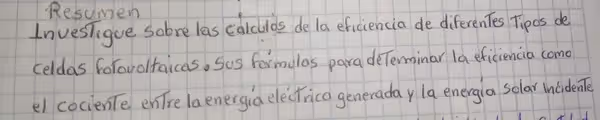 Resumen
Investigue sobre las cálculos de la eficiencia de diferentes Tipos de
celdas fotovoltaicas. Sus fórmulas para determinar la eficiencia como
el cociente entre la energía eléctrica generada y la energía solar incidente